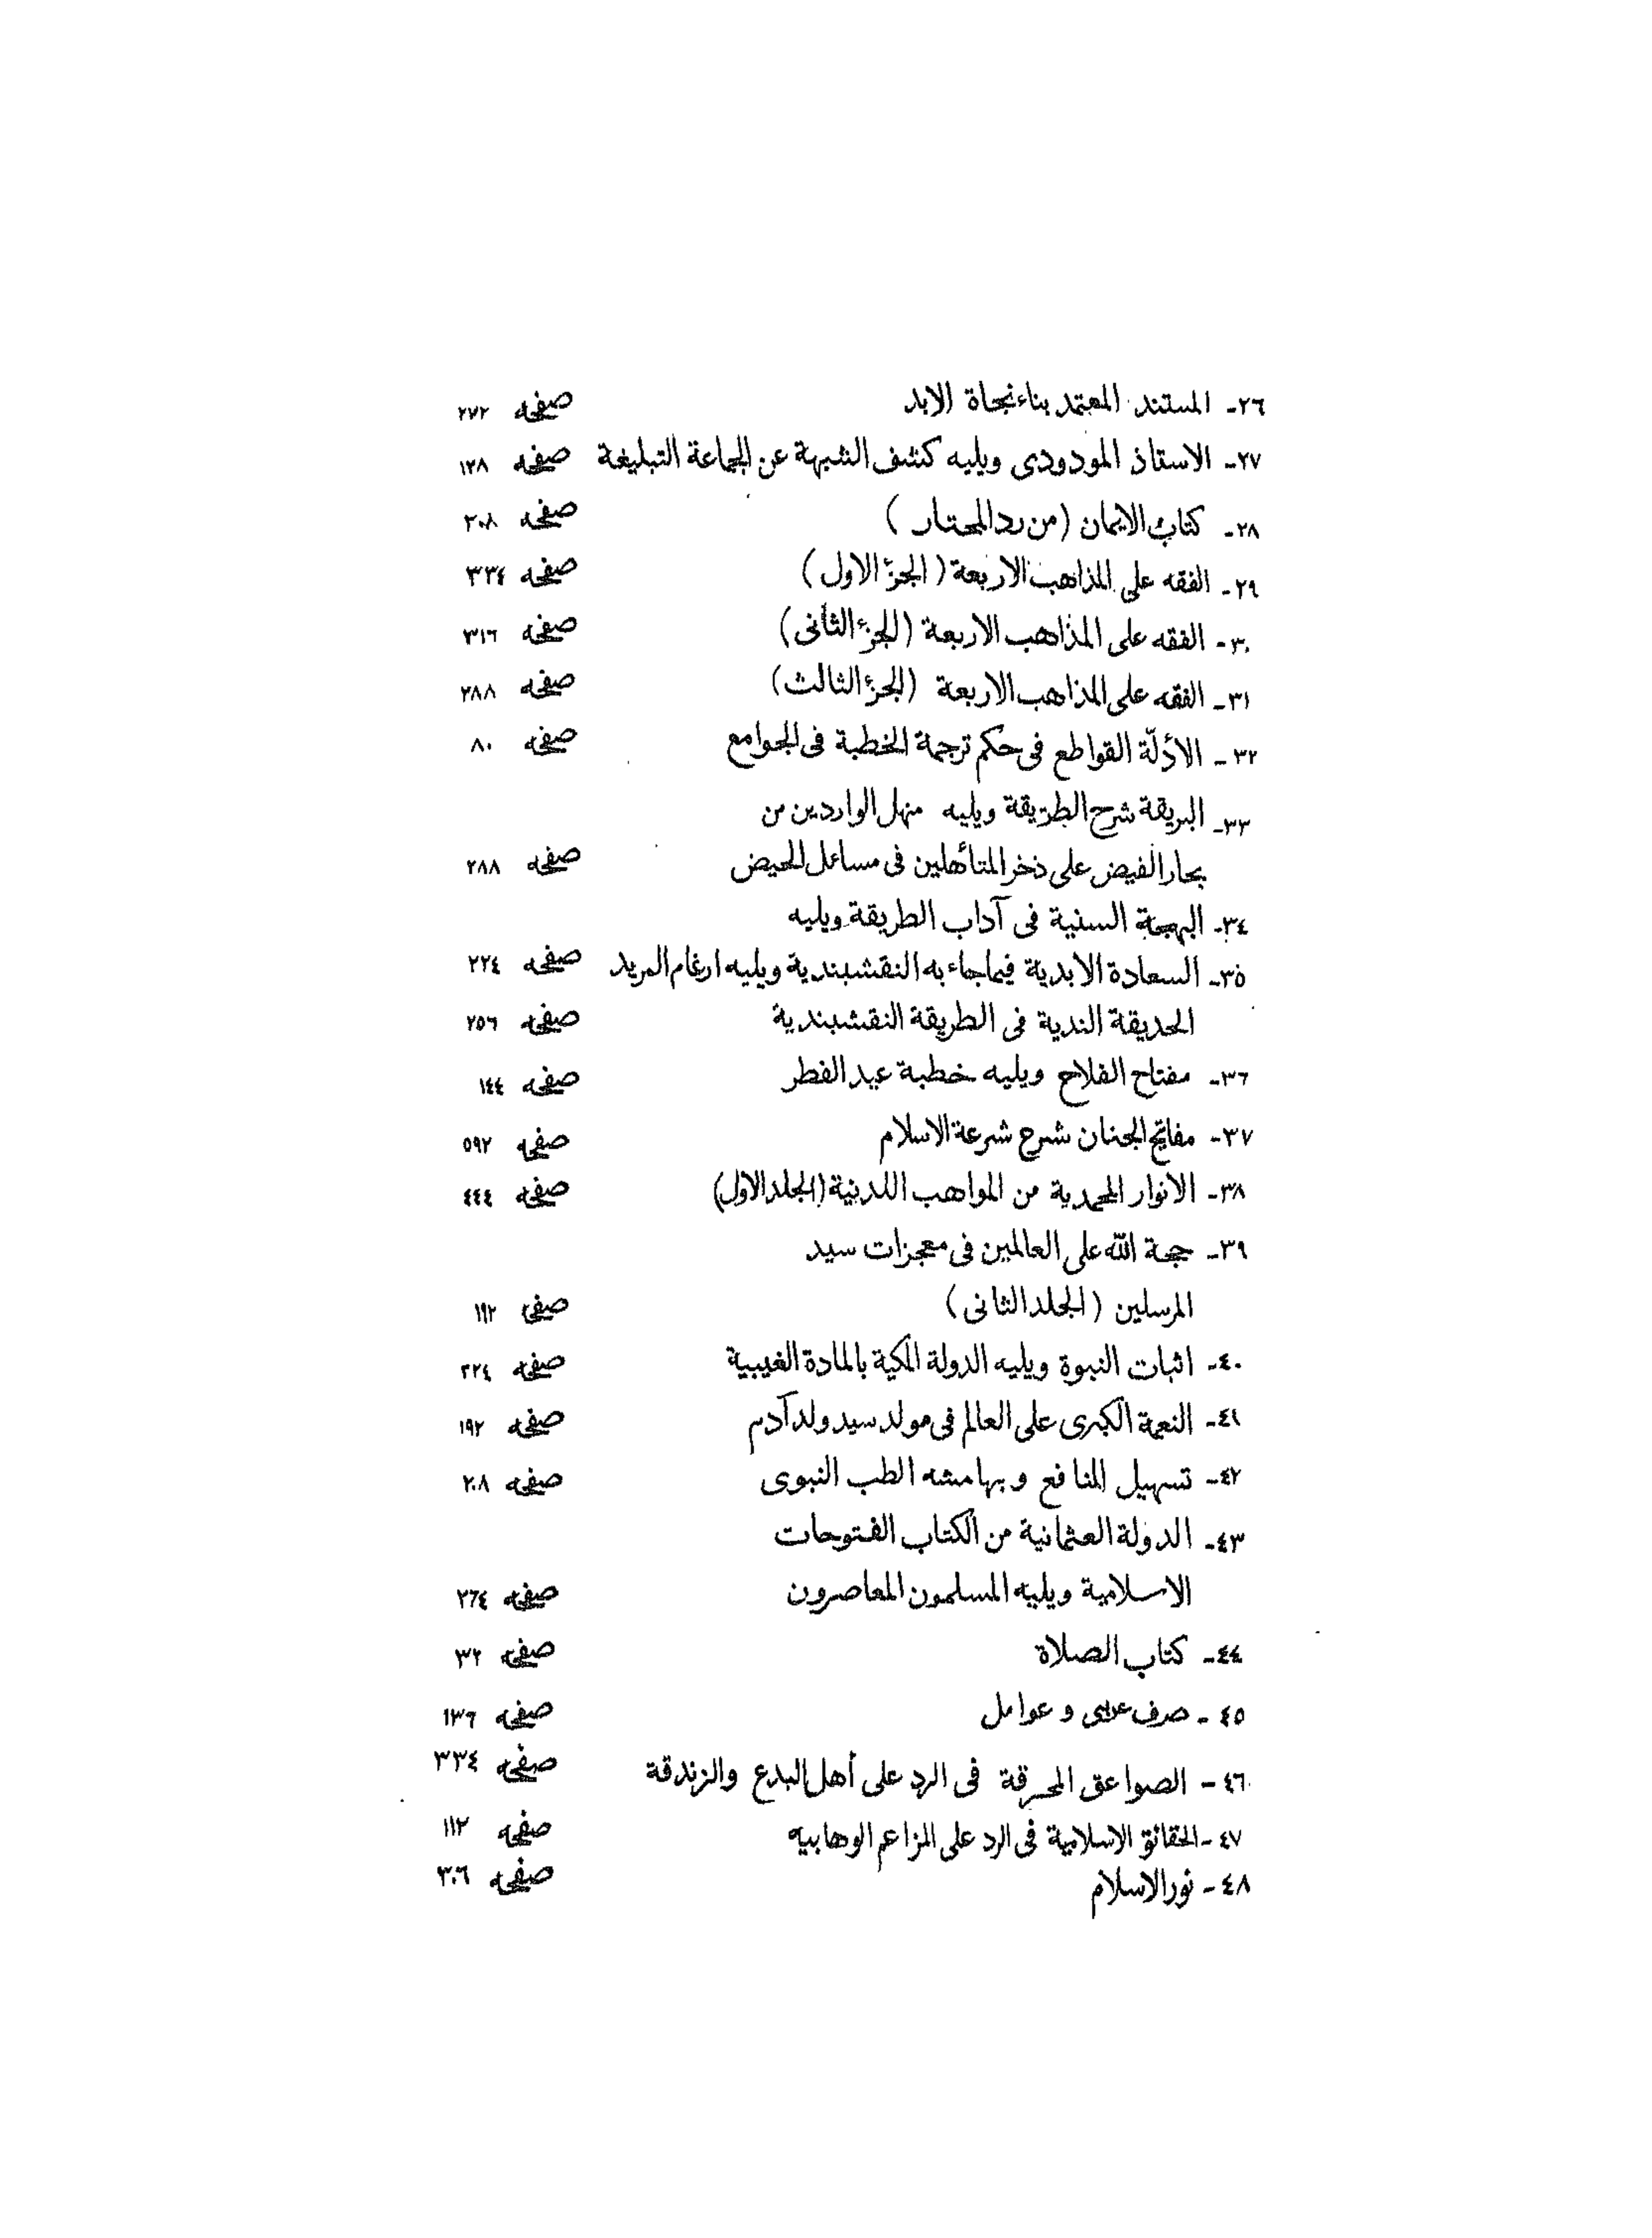 ٢٦- المستند المعتمد بناء نجاة الابد صفحه ٢٧٢
٢٧- الاستاذ المودودى ويليه كشف الشبهة عن الجماعة التبليغة صفحه ١٢٨
٢٨- كتاب الايمان (من رد المحتار) صفحه ٢٠٨
٢٩- الفقه على المذاهب الاربعة (الجزء الاول) صفحه ٣٣٤
٣٠- الفقه على المذاهب الاربعة (الجزء الثانى) صفحه ٣١٦
٣١- الفقه على المذاهب الاربعة (الجزء الثالث) صفحه ٢٨٨
٣٢- الأدلّة القواطع فى حكم ترجمة الخطبة فى الجوامع صفحه ٨٠
٣٣- البريقة شرح الطريقة ويليه منهل الواردين من
بحار الفيض على ذخر المتأهلين فى مسائل الحيض صفحه ٢٨٨
٣٤- البهجة السنية فى آداب الطريقة ويليه
٣٥- السعادة الابدية فيما جاء به النقشبندية ويليه ارغام المريد صفحه ٢٢٤
الحديقة الندية فى الطريقة النقشبندية صفحه ٢٥٦
٣٦- مفتاح الفلاح ويليه خطبة عيد الفطر صفحه ١٤٤
٣٧- مفاتيح الجنان شرح شرعة الاسلام صفحه ٥٩٢
٣٨- الانوار المحمدية من المواهب اللدنية (الجلد الاول) صفحه ٤٤٤
٣٩- حجة الله على العالمين فى معجزات سيد
المرسلين (الجلد الثانى) صفحه ١٩٢
٤٠- اثبات النبوة ويليه الدولة المكية بالمادة الغيبية صفحه ٢٢٤
٤١- النعمة الكبرى على العالم فى مولد سيد ولد آدم صفحه ١٩٢
٤٢- تسهيل المنافع وبهامشه الطب النبوى صفحه ٢٠٨
٤٣- الدولة العثمانية من الكتاب الفتوحات
الاسلامية ويليه المسلمون المعاصرون صفحه ٢٦٤
٤٤- كتاب الصلاة صفحه ٣٢
٤٥- صرف عربى و عوامل صفحه ١٣٦
٤٦- الصواعق المحرقة فى الرد على أهل البدع والزندقة صفحه ٣٣٤
٤٧- الحقائق الاسلامية فى الرد على المزاعم الوهابيه صفحه ١١٢
٤٨- نور الاسلام صفحه ٣٠٦